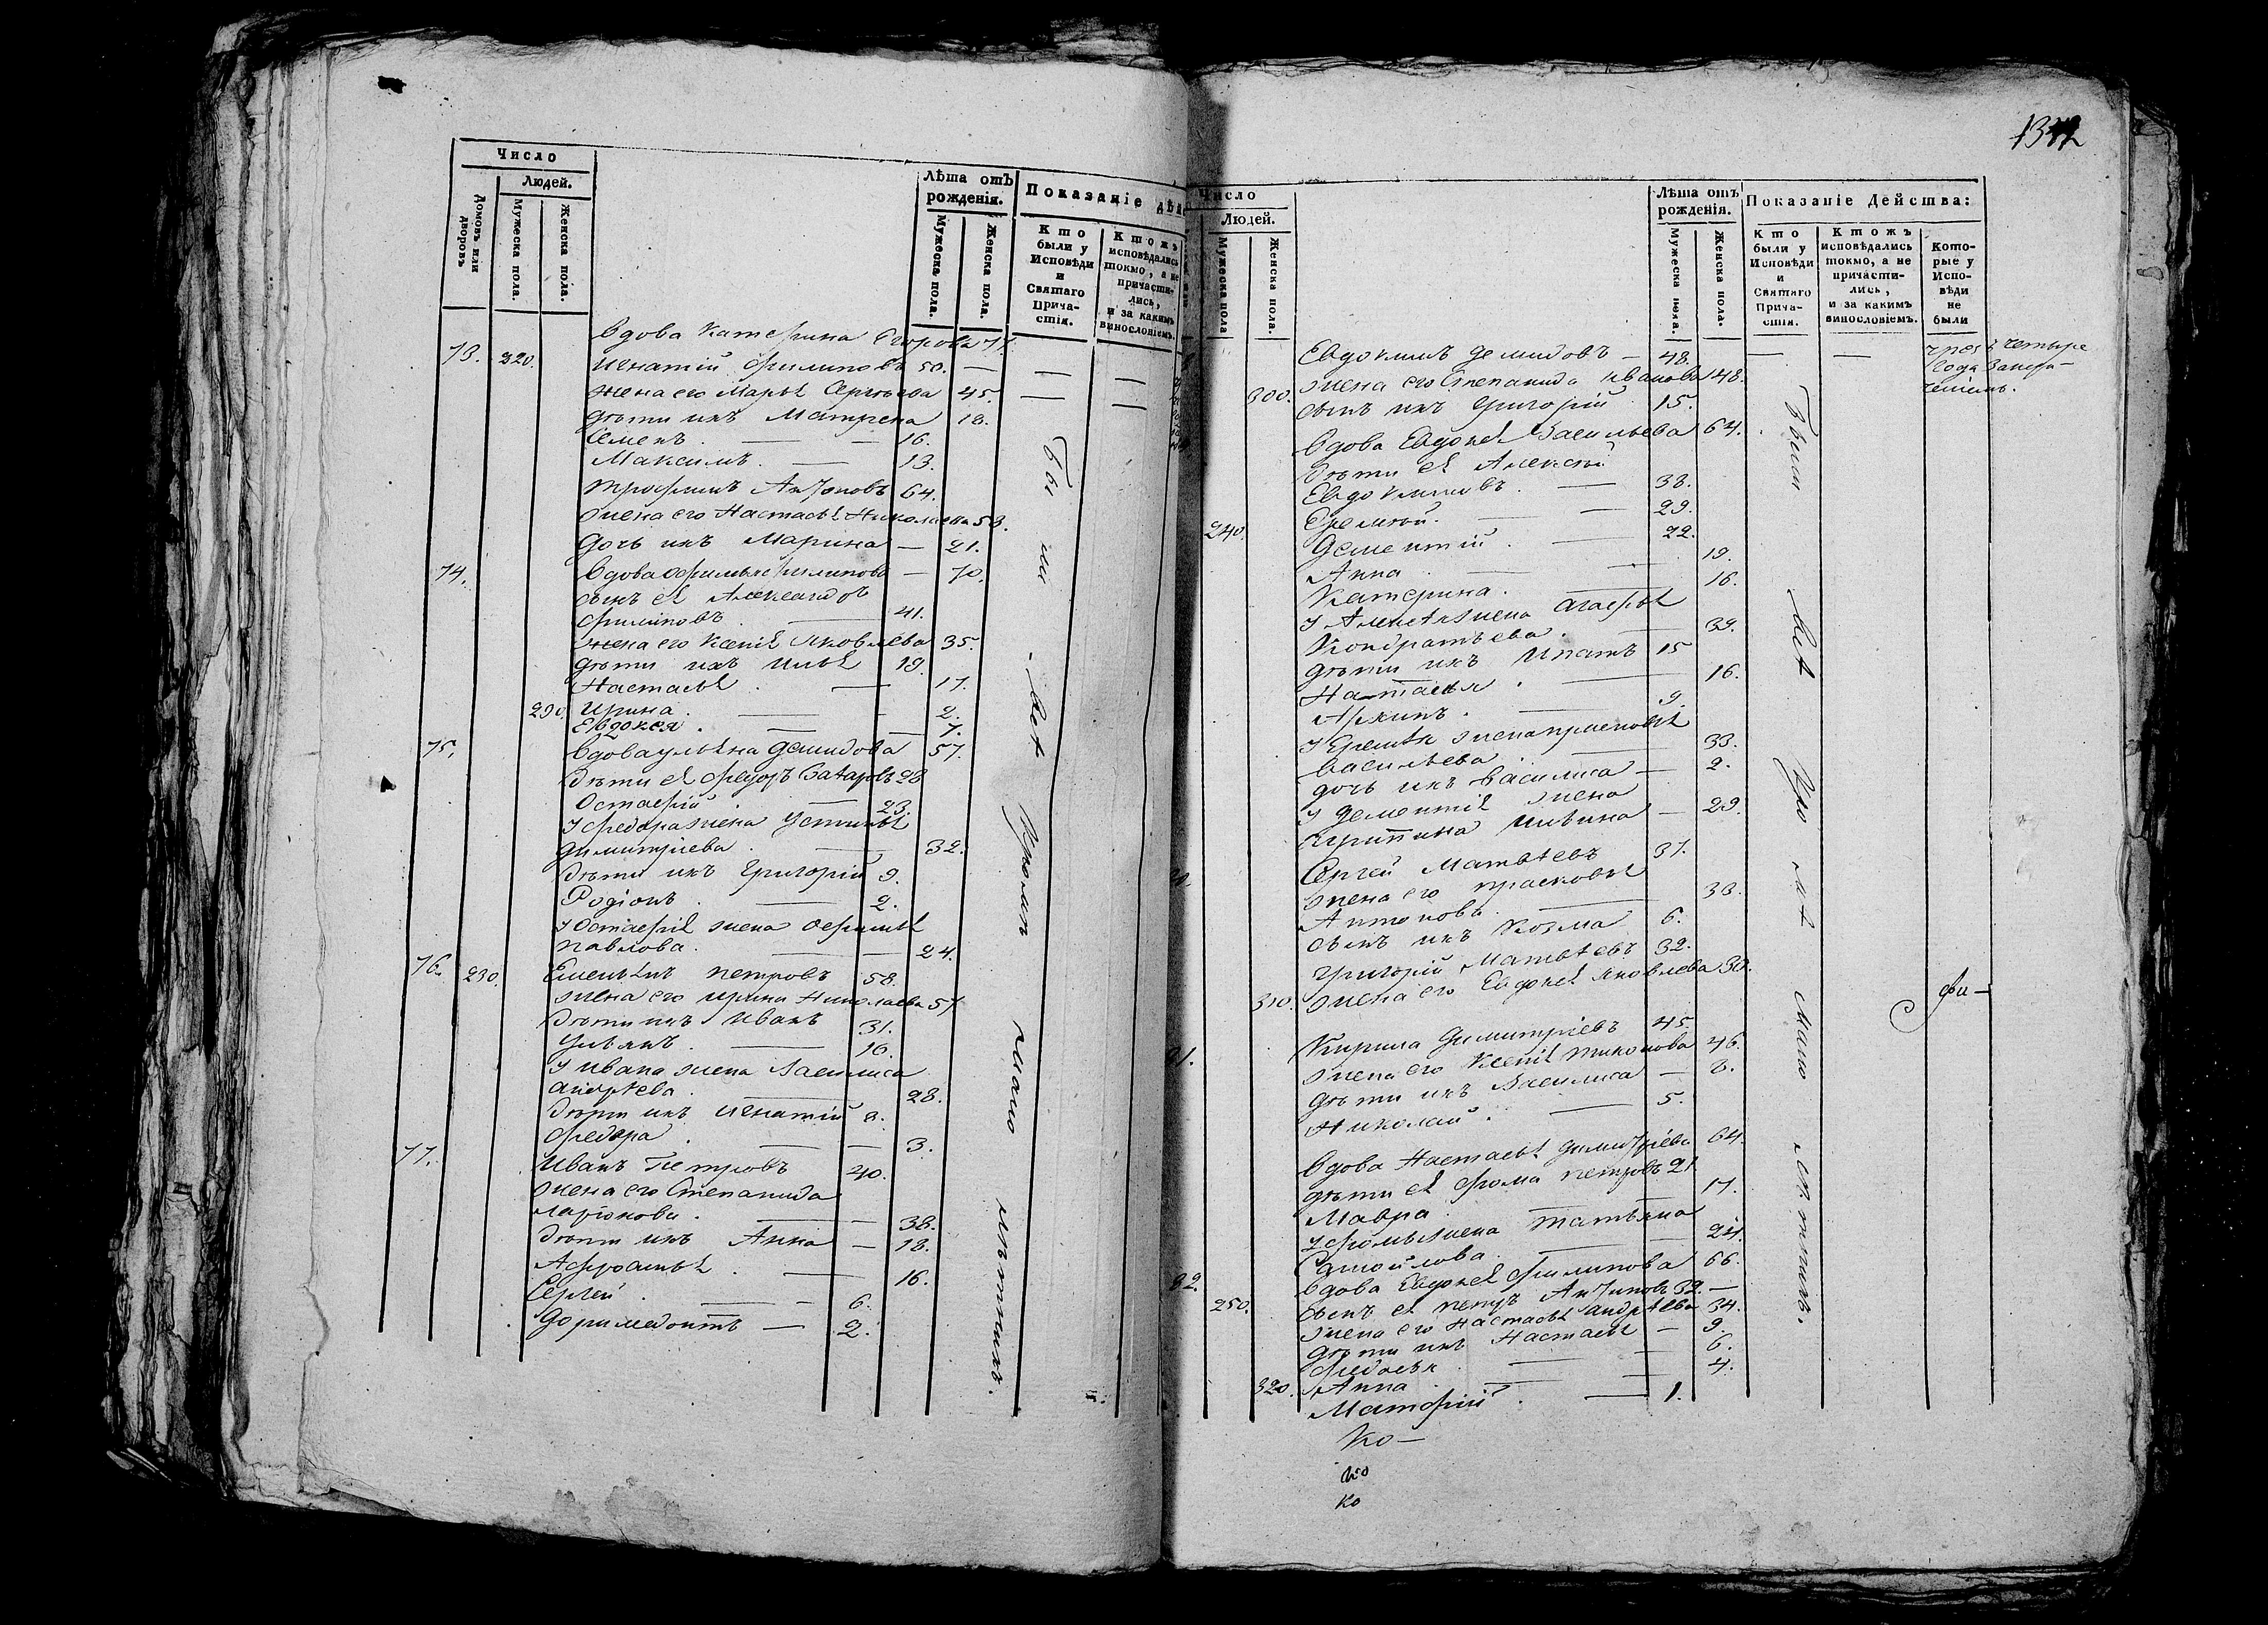 Число
Людей.
Домовъ или дворовъ
Мужеска пола.
Женска пола.
Лѣта отъ рожденія.
Мужеска пола.
Женска пола.
Показаніе дѣй
Кто были у Исповѣди и Святаго Прича- стія.
Ктожъ исповѣдались токмо, а не причасти- лись, и за какимъ винословіемъ.
Вдова Катерина Егорова 71.
73. 220. Игнатій Филиповъ 50. —
жена его Марья Сергѣева 45.
дѣти ихъ Матрена 18.
Семенъ. — — 16.
Максимъ. — 13.
Трофимъ Антоновъ 64.
жена его Настасья Николаева 53.
дочь ихъ Марина — 21.
74. Вдова Офимья Филипова — 70.
сынъ ея Александръ
Филиповъ — 41.
жена его Ксенія Яковлева 35.
дѣти ихъ Илья 19.
Настасья. — 17.
290. Ирина. — — 2.
Евдокея. — — 7.
75. Вдова Ульяна Демидова 57.
дѣти ея Федоръ Захаровъ 28
Остафій. — 23.
у Федора жена Устинья
Димитріева. — 32.
дѣти ихъ Григорій 9.
Родіонъ. — 2.
у Остафія жена Офимья
Павлова. — — 24.
76. 230. Емельянъ Петровъ 58.
жена его Ирина Николаева 57
дѣти ихъ Иванъ 31.
Ульянъ. — 16.
у Ивана жена Василиса
Андрѣева. — 28.
дѣти ихъ Игнатій 8.
Федора. — — 3.
77. Иванъ Петровъ 40.
жена его Степанида
Ларіонова. — — 38.
дѣти ихъ Анна — 18.
Афросинья. — 16.
Сергей. — — 6.
Доримедонтъ — 2.
Бы ли всѣ кромѣ мало лѣтнихъ.
1342
Число
Людей.
Мужеска пола
Женска пола.
Лѣта отъ рожденія.
Мужеска пола.
Женска пола.
Показаніе Дѣйства:
Кто были у Исповѣди и Святаго Прича- стія.
Ктожъ исповѣдались токмо, а не причасти- лись, и за какимъ винословіемъ.
Кото- рые у Испо- вѣди не были
Евдокимъ Демидовъ — 48. — —
жена его Степанида Иванова 48.
300. сынъ ихъ Григорій 15.
Вдова Евдокея Васильева 64.
дѣти ея Алексѣй
Евдокимовъ. — 38.
Еремѣй. — — 29.
240. Дементій. — 22.
Анна. — — 19.
Катерина. — 16.
у Алексѣя жена Агафья
Кондратьева. — 39.
дѣти ихъ Ипатъ 15
Настасья. — 16.
Архипъ. — 9.
у Еремѣя жена Прасковья
Васильева — 33.
дочь ихъ Василиса — 2.
у Дементія жена
— 29.
Сергей Матвѣевъ 37.
жена его Прасковья
Антонова. — 38.
сынъ ихъ Козма 6.
Григорій Матвѣевъ 32.
310. жена его Евдокея Яковлева 30.
Кирила Димитріевъ 45.
жена его Ксенія Тихонова 46.
дѣти ихъ Василиса — 8.
Николай. — 5.
Вдова Настасья Димитріева 64.
дѣти ея Фома Петровъ 21
Мавра. — 17.
у Фомы жена Татьяна
Самойлова. — — 24.
82. Вдова Евдокея Филипова 66.
250. сынъ ея Петръ Антиповъ 32. —
жена его Настасья Андрѣева 34.
дѣти ихъ Настасья — 9.
Федосья. — — 6.
320. Анна. — — 4.
— 1.
Ко—
ко
ко
Были всѣ кро мѣ мало лѣтнихъ.
фи—